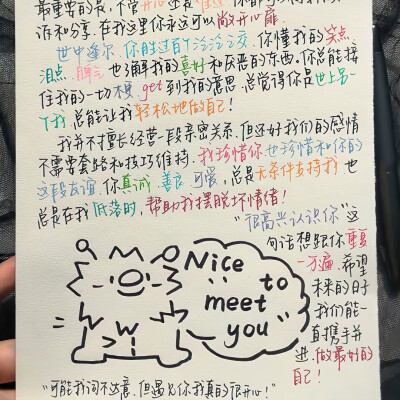 最重要的 不管开心还是难过
诉和分享。在我这里你永远可以敞开心扉
世中逢尔,你胜过百个泛泛之交,你懂我的笑点
泪点、脾气,也了解我的喜好和厌恶的东西,你总能接
住我的一切梗,get到我的意思,总觉得你是世上另一
个我,总能让我轻松地做自己!
我并不擅长经营一段亲密关系,但还好我们的感情
不需要套路和技巧维持。我珍惜你也珍惜和你的
这段友谊,你真诚、善良、可爱,总是无条件支持我也
总是在我低落时,帮助我摆脱坏情绪!
“很高兴认识你”这
句话想跟你重复
一万遍,希望
未来的日子
我们能一
直携手并
进,做最好的
自己!
Nice
to
meet
you
“可能我词不达意,但遇见你我真的很开心!”